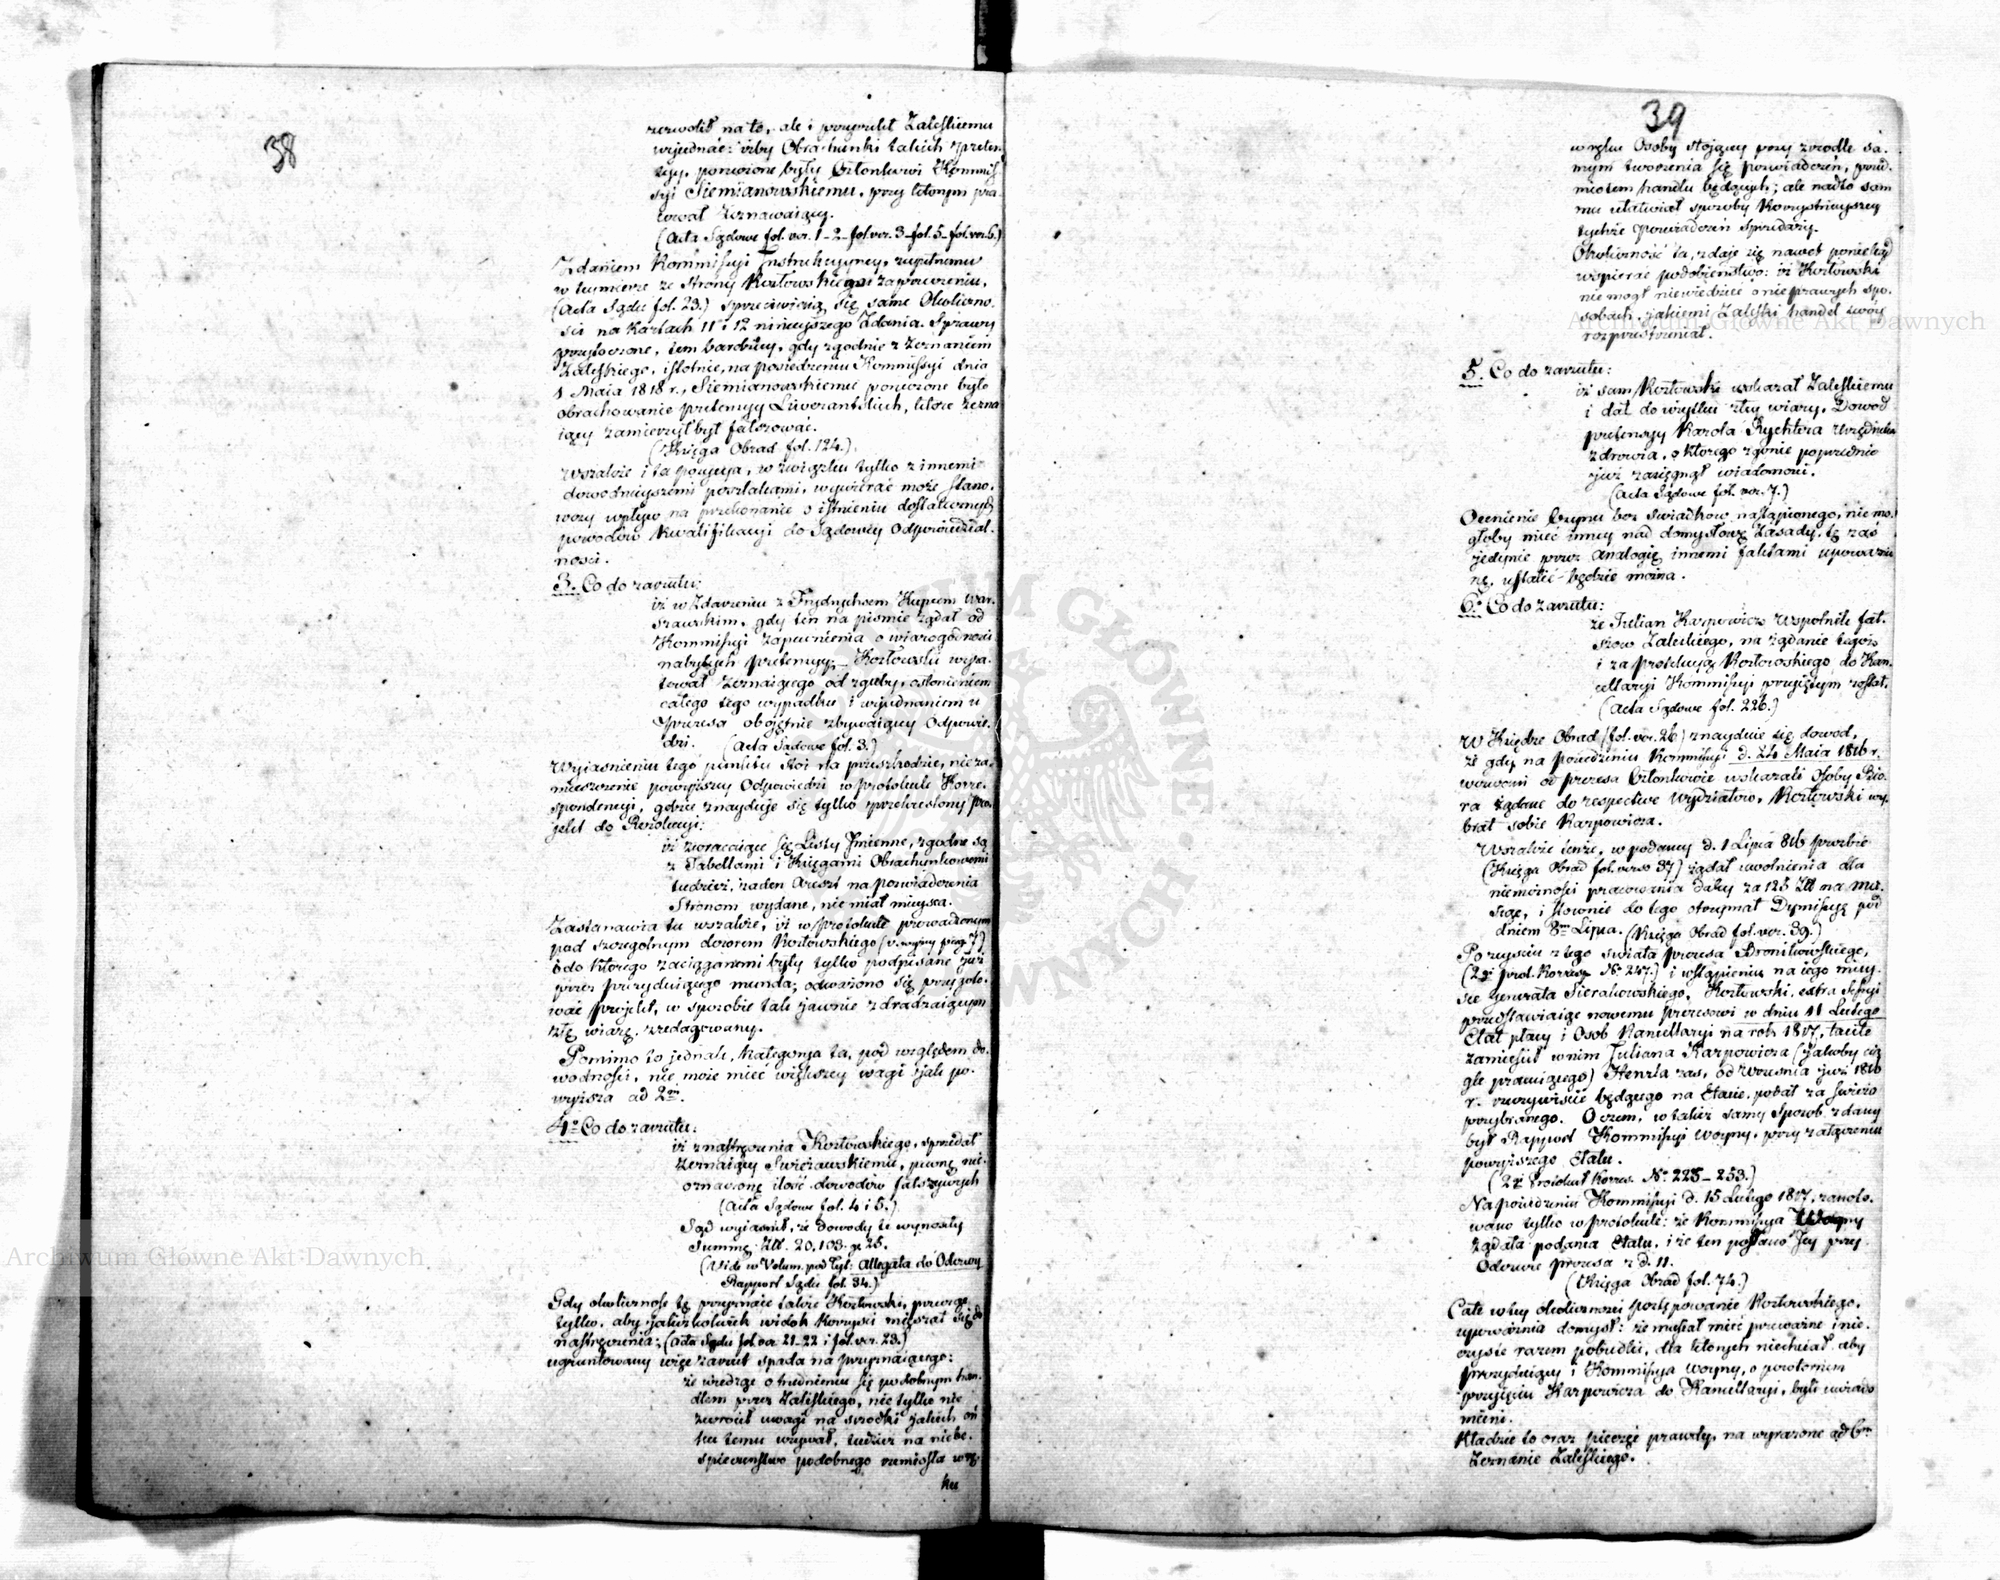 38
zezwolił na to, ale i przyrzekł Zaleskiemu
wyjednać: iżby Obrachunki takich preten-
syi, poruczone były Członkowi Kommis-
syi Siemianowskiemu, przy którym pra-
cował Zeznawaiący.
(Acta Sądowe fol. ver. 1-2- fol. ver. 3-fol. 5-fol. ver. 6.)
Zdaniem Kommissyi Instrukcyyney, zupełnemu
w tey mierze ze strony Kozłowskiego zaprzeczeniu,
(Acta Sądu fol. 23.) sprzeciwiaią się same Okoliczno-
ści na kartach 11 i 12 ninieyszego Zdania Sprawy
przytoczone, tem bardziey, gdy zgodnie z Zeznaniem
Zaleskiego, istotnie, na posiedzeniu Kommissyi dnia
1 Maia 1818 r., Siemianowskiemu poruczone było
obrachowanie pretensyy Liwerantskich, które Zezna-
iący zamierzył był fałszować.
(Księga Obrad fol. 124.)
Wszakże i ta pozycya, w związku tylko z innemi
dowodnieyszemi poszlakami, wywierać może stano-
wczy wpływ na przekonanie o istnieniu dostatecznych
powodów kwalifikacyi do Sądowey Odpowiedzial-
ności.
3. Co do zarzutu:
iż w Zdarzeniu z Frydrychsem Kupcem War-
szawskim, gdy ten na piśmie żądał od
Kommissyi Zapewnienia o wiarogodności
nabytych pretensyy; – Kozłowski wyra-
tował Zeznaiącego od zguby, osłonieniem
całego tego wypadku i wyjednaniem u
Prezesa obojętnie zbywaiącey Odpowie-
dzi. (Acta Sądowe fol. 3.)
Wyiaśnieniu tego punktu stoi na przeszkodzie, nieza-
mieszczenie powyższey Odpowiedzi w protokule Korre-
spondencyi, gdzie znayduje się tylko przekreślony pro-
jekt do Rezolucyi:
iż zwracaiące się Listy Imienne, zgodne są
z Tabellami i Księgami Obrachunkowemi
tudzież, żaden Areszt na poswiadczenia
Stronom wydane, nie miał mieysca.
Zastanawia tu wszakże, iż w protokule prowadzonym
pod szczególnym dozorem Kozłowskiego (v. wyżey pag. 7)
i do którego zaciąganemi były tylko podpisane już
przez prezyduiącego munda, odważono się przygoto-
wać projekt, w sposobie tak jawnie zdradzaiącym
złą wiarę, zredagowany.
Pomimo to jednak, kategorya ta, pod względem do-
wodności, nie może mieć większey wagi jak po-
wyższa ad 2m.
4o Co do zarzutu:
iż z nastręczenia Kozłowskiego, sprzedał
Zeznaiący Swieżawskiemu, pewną nie-
oznaczoną ilość dowodów fałszywych
(Acta Sądowe fol. 4 i 5.)
Sąd wyiaśnił, że Dowody te wynosiły
Summę Złł. 20,103. gr 25.
(Vide w Volum. pod tyt: Allegata do Odezwy
Rapport Sądu fol. 34.)
Gdy okoliczność tę przyznaie także Kozłowski, przecząc
tylko, aby jakiżkolwiek widok korzyści mięszał się do
nastręczenia; (Acta Sądu fol. ver. 21-22 i fol. ver. 23.)
ugruntowany więc zarzut spada na przyznaiącego:
że wiedząc o trudnieniu się podobnym han-
dlem przez Zaleskiego, nie tylko nie
zwrócił uwagi na środki jakich on
ku temu używał, tudzież na niebe-
spieczeństwo podobnego rzemiosła w rę-
ku
39
w ręku Osoby stojącey przy źródle sa-
mym tworzenia się poswiadczeń, przed-
miotem handlu będących; ale nadto sam
mu ułatwiał sposoby korzystnieyszey
tychże poswiadczeń sprzedaży.
Okoliczność ta, zdaje się nawet poniekąd
wspierać podobieństwo: iż Kozłowski
nie mógł niewiedzieć o nieprawych spo-
sobach, jakiemi Zaleski handel swóy
rozprzestrzeniał.
5. Co do zarzutu:
iż sam Kozłowski wskazał Zaleskiemu
i dał do użytku złey wiary, Dowód
pretensyy Karola Rychtera Urzędnika
zdrowia, o którego zgonie poprzednio
już zasięgnął wiadomości.
(Acta Sądowe fol. ver. 7.)
Ocenienie Czynu bez świadków nastąpionego, nie mo-
głoby mieć inney nad domysłową Zasady, tę zaś
jedynie przez Analogię innemi faktami upoważnio-
ną, ustalić będzie można.
6o Co do Zarzutu:
że Julian Karpowicz Wspólnik fał-
szów Zaleskiego, na żądanie tegoż
i za protekcyą Kozłowskiego do Kan-
cellaryi Kommissyi przyjętym został.
(Acta Sądowe fol. 226.)
W Księdze Obrad (fol. ver. 26) znayduie się dowód,
że gdy na posiedzeniu Kommissyi d. 24 Maia 1816 r.
wezwani od prezesa Członkowie wskazali Osoby Biu-
ra żądane do respective Wydziałów, Kozłowski wy-
brał sobie Karpowicza.
Wszakże tenże, w podaney d. 1 Lipca 816 prośbie
(Księga Obrad fol. verso 37) żądał uwolnienia dla
niemożności pracowania daley za 125 Złł na mie-
siąc, i stownie do tego otrzymał Dymissyą pod
dniem 8m Lipca. (Księga Obrad fol. ver. 39.)
Po zeyściu z tego świata prezesa Bronikowskiego,
(2gi prot. Korresp. No. 247.) i wstąpieniu na iego miey-
sce Generała Sierakowskiego, Kozłowski, extra Sessyi
przedstawiaiąc nowemu prezesowi w dniu 11 Lutego
Etat płacy i Osób Kancellaryi na rok 1817, także
zamieścił w nim Juliana Karpowicza (jakoby cią-
gle pracuiącego) Henzla zaś, od Września już 1816
r. rzeczywiście będącego na Etacie, podał za świeżo
przybranego. Oczem, w takiż samy sposób, zdany
był Rapport Kommissyi Woyny, przy załączeniu
powyższego Etatu.
(2gi Protokuł Korres. No 225-253.)
Na posiedzeniu Kommissyi d. 15 Lutego 1817, zanoto-
wano tylko w protokule: że Kommissya Woyny
żądała podania Etatu, i że ten posłano Jey przy
Odezwie prezesa z d. 11.
(Księga Obrad fol. 74.)
Całe w tey okoliczności postępowanie Kozłowskiego,
upoważnia domysł: że musiał mieć przeważne i nie-
czyste razem pobudki, dla których niechciał, aby
prezyduiący i Kommissya Woyny, o powtórnem
przyjęciu Karpowicza do Kancellaryi, byli uwiado-
mieni.
Kładzie to oraz pieczęć prawdy, na wyrażone ad 6m
Zeznanie Zaleskiego.
Archiwum Główne Akt Dawnych
Archiwum Główne Akt Dawnych